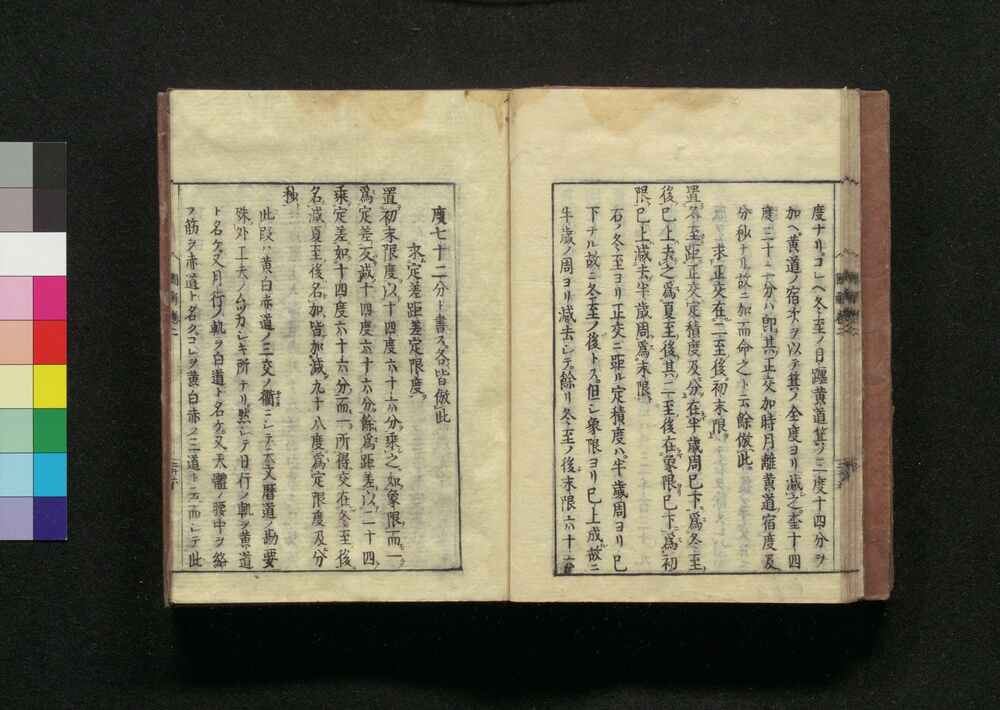 度ナリコレヘ冬至ノ日躔黄道箕ノ三度十四分ヲ
加ヘ黄道ノ宿次ヲ以テ其ノ全度ヨリ減之
度三十六分ハ即其正交加時月離黄道宿度及
分秒ナル故ニ加而命之ト云餘倣此
求正交在二至後初末限
置冬至距正交定積度及分在半歳周巳下爲冬至
後巳上去之爲夏至後其二至後在象限巳下爲初
限巳上減去半歳周爲末限
右ノ冬至ヨリ正交ニ距ル定積度ハ半歳周ヨリ巳
下ナル故ニ冬至ノ後トス但シ象限ヨリ巳上成故ニ
半歳ノ周ヨリ減去シテ餘リ冬至ノ後末限六十
度七十二分ト書ス各皆倣此
求定差距差定限度
置初末限度以十四度六十六分乘之如象限而一
爲定差反減十四度六十六分餘爲距差以二十四
乘定差如十四度六十六分而一所得交在冬至後
名減夏至後名加皆加減九十八度爲定限度及分
秒
此段ハ黄白赤道ノ三交ノ衢ニシテ天文暦道ノ勘要
殊外工夫ノムツカシキ所ナリ然シテ日行ノ軌ヲ黄道
ト名ケ又月行ノ軌ヲ白道ト名ケ又天體ノ腰中ヲ絡
フ筋ヲ赤道ト名クコレヲ黄白赤ノ三道ト云而シテ此